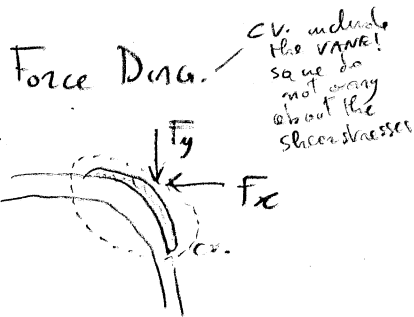 Force Diag.
CV. include
the VANE!
so we do
not worry
about the
shear stresses
Fy
Fx
cv.